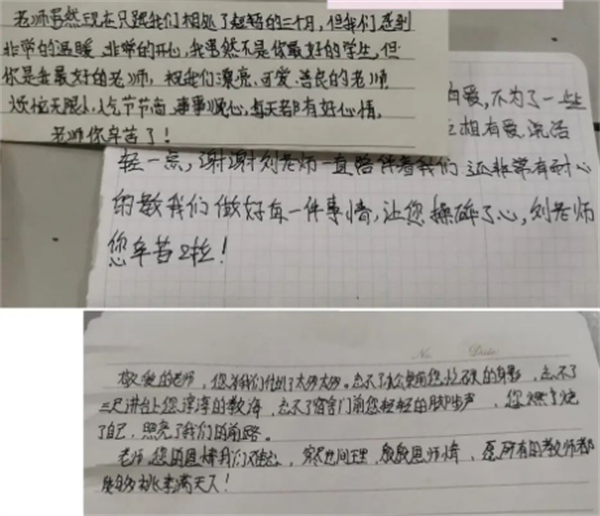 老师虽然现在只跟我们相处了短短的三个月,但我们感到
非常的温暖 非常的开心,我虽然不是你最好的学生,但
你是我最好的老师,祝我们漂亮、可爱、善良的老师
烦恼无限小,人气节节高,事事顺心,每天都有好心情,
老师你辛苦了!
爱,不为了一些
相有爱,说话
轻一点,谢谢刘老师一直陪伴着我们 还非常有耐心
的教我们做好每一件事情,让您操碎了心,刘老师
您辛苦了啦!
No. Date
敬爱的老师,您为我们付出了太多太多。忘不了办公桌前您忙碌的身影,忘不了
三尺讲台上您谆谆的教诲,忘不了宿舍门前您轻轻的脚步声,您燃烧
了自己,照亮了我们的前路。
老师,您的恩情我们,殷殷恩师情,愿所有的教师都
能够桃李满天下!